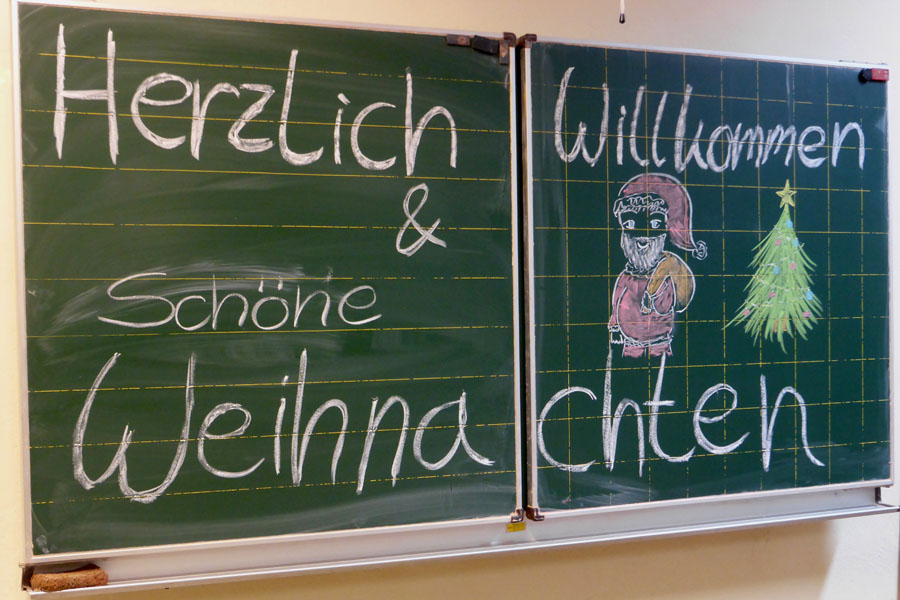 Herzlich Willkommen
&
Schöne
Weihnachten